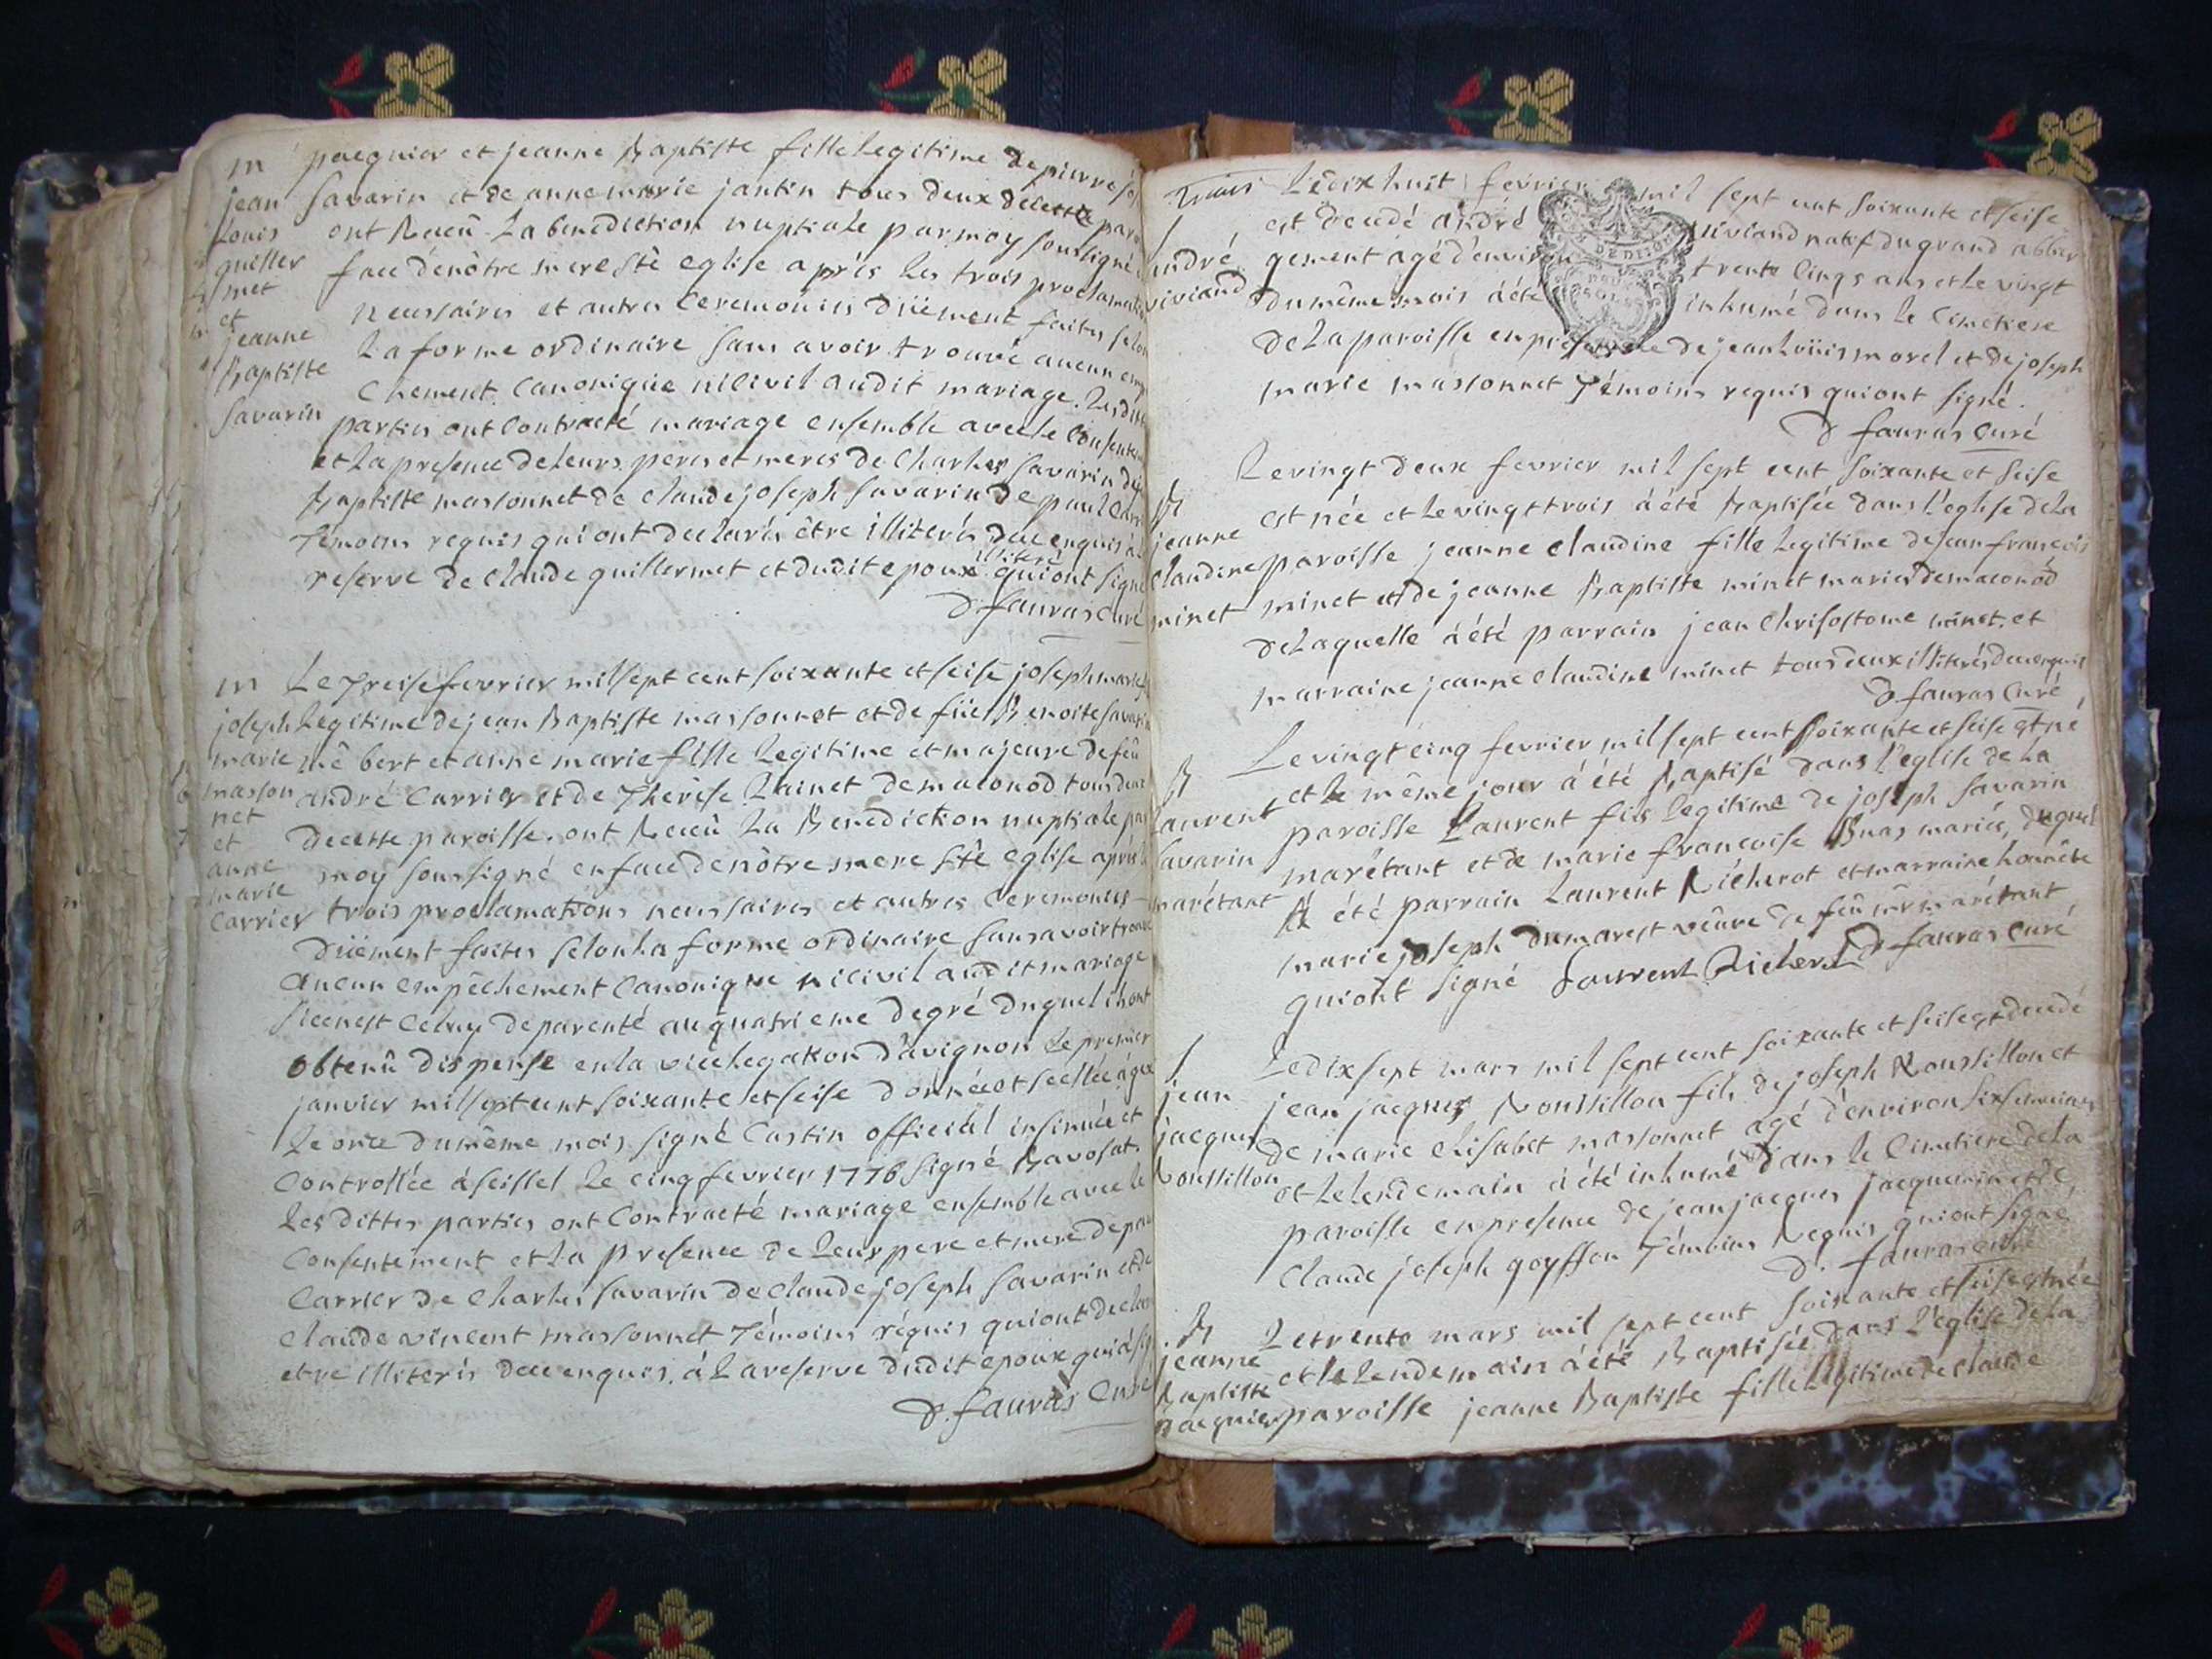 m
jean
Louis
guiller
met
et
jeanne
Baptiste
Savarin
pacquier et jeanne Baptiste fille legitime de pierre
Savarin et de anne marie jantin tous deux de cette
ont Receû La benediction nuptiale par moy soussigné
face de nôtre mere ste eglise après les trois proclamat
necessaires et autres Ceremonies düement faites selon
La forme ordinaire sans avoir trouvé aucun emp
chement Canonique ni civil audit mariage. Lesdit
parties ont Contracté mariage ensemble avec le Consente
et La presence de leurs peres et meres de Charles Savarin de
Baptiste massonnet de claude joseph Savarin de paul Carr
Temoins requis qui ont declarés être illiterés de ce enquis à
reserve de Claude guillermet et dudit epoux qui ont signé
D. fauras Curé
m
joseph
marie
masson
net
et
anne
marie
Carrier
Le Treise fevrier mil sept cent soixante et seise joseph marie
Legitime de jean Baptiste massonnet et de füe Benoite Savarin
bert et anne marie fille Legitime et majeure de feû
andré Carrier et de Therèse Rainet de maconod tous deux
de cette paroisse. ont Receû La Benediction nuptiale par
moy soussigné en face de nôtre mere ste eglise après
trois proclamations necessaires et autres Ceremonies
düement faites selon La forme ordinaire sans avoir trouvé
aucun empêchement Canonique ni civil audit mariage
si ce n'est Celuy de parenté au quatrieme degré duquel ils ont
obtenû dispense en la vice legation d'avignon le premier
janvier mil sept cent soixante et seise donnée et scellée à
Le onze du même mois signé Castin official insinuée et
Controllée à seissel Le cinq fevrier 1776 signé Ravosat.
Les dittes parties ont Contracté mariage ensemble avec le
Consentement et La presence de Leur pere et mere de paul
Carrier de Charles Savarin de Claude joseph Savarin et de
claude vincent massonnet Témoins réquis qui ont declaré
etre illiterés de ce enquis. à La reserve dudit epoux qui à
D. fauras Curé
andré
viviand
Le dix huit fevrier mil sept cent soixante et seise
est decedé andré viviand natif du grand abber
gement âgé d'environ trente Cinq ans et Le vingt
du même mois à été inhumé dans le Cimetiere
de La paroisse en presence de jean Loüis morel et de joseph
marie massonnet Témoins requis qui ont signé.
D fauras Curé
B
jeanne
Claudine
minet
Le vingt deux fevrier mil sept cent soixante et seise
est née et Le vingt trois à été Baptisée dans L'église de La
paroisse jeanne claudine fille Legitime de jean francois
minet et de jeanne Baptiste minet mariés de maconod
de Laquelle à été parrain jean Chrisostome minet. et
marraine jeanne Claudine minet tous deux illiterés de ce enquis
D fauras Curé
B
Laurent
Savarin
marétant
Le vingt cinq fevrier mil sept cent soixante et seise est né
et le même jour à été Baptisé dans L'eglise de La
paroisse Laurent fils Legitime de joseph Savarin
marêtant et de marie francoise Buas mariés, duquel
à été parrain Laurent Richerot et marraine honnête
marie joseph dumarest veûve de feû sr marétant
qui ont signé Laurent Richerot D fauras Curé
jean
jacques
Roussillon
Le dix sept mars mil sept cent soixante et seise est decedé
jean jacques Roussillon fils de joseph Roussillon et
de marie elisabet massonnet agé d'environ six semaines
et Le lendemain à été inhumé dans le Cimetiere de La
paroisse en presence de jean jacques jacquemin et de
Claude joseph goyffon Témoins Requis qui ont signé
D. fauras curé
B
jeanne
Baptiste
pacquier
Le trente mars mil sept cent soixante et seise est née
et le Lendemain à été Baptisée dans L'église de La
paroisse jeanne Baptiste fille Legitime de claude